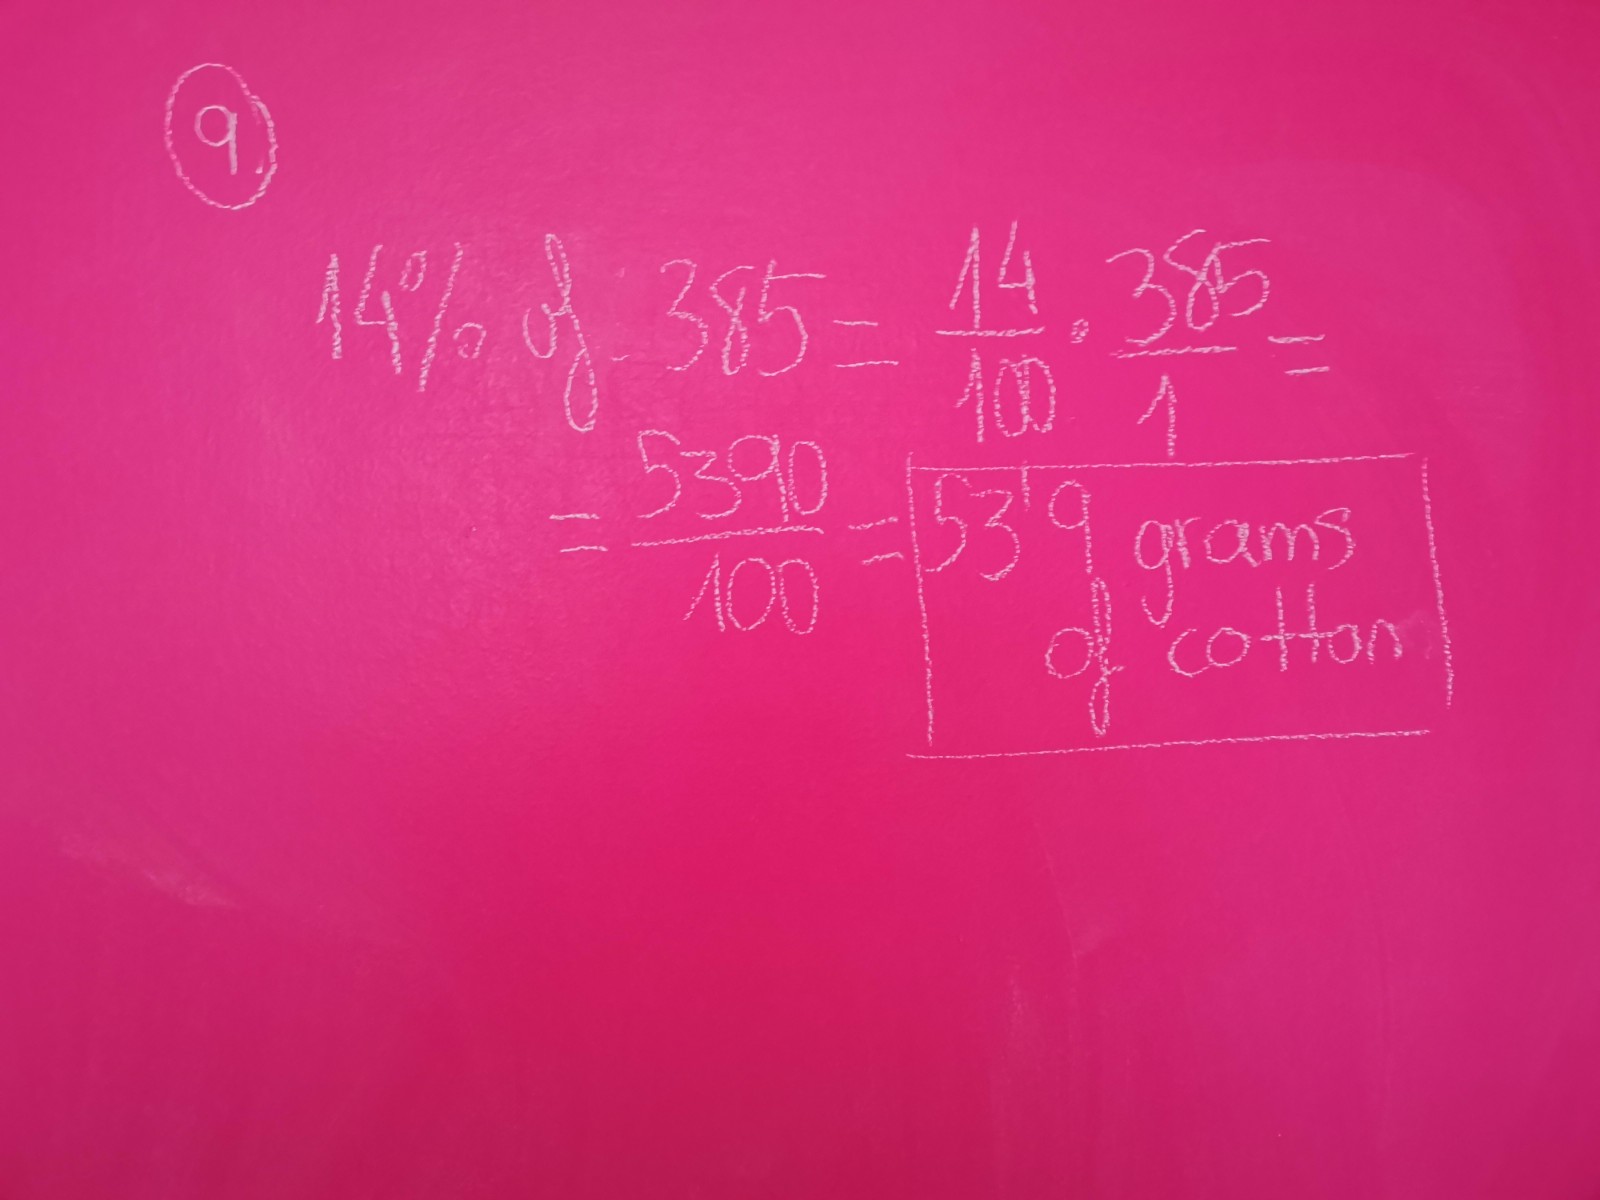 9)
14% of 385 = 14/100 · 385/1 =
= 5390/100 = 53'9 grams
of cotton